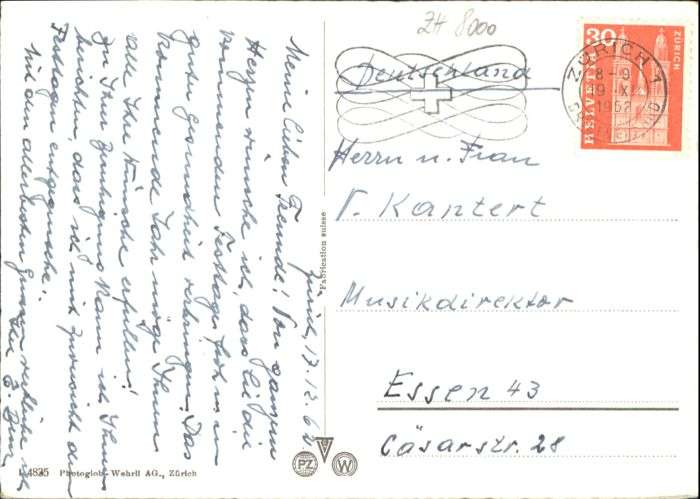 ZH 8000
30
HELVETIA
ZÜRICH
ZÜRICH 1
8-9
19. X
1962
Deutschland
Herrn u. Frau
P. Kantert
Musikdirektor
Essen 43
Cäsarstr. 28
Zürich, 17.12.62
Meine lieben Freunde! Von ganzem
Herzen wünsche ich, dass Sie die
kommenden Festtage froh u. in
guter Gesundheit verbringen. Das
kommende Jahr möge Ihnen
alle Ihre Wünsche erfüllen!
Zu Ihrer Beruhigung kann ich Ihnen
berichten, dass ich mit Zuversicht den
Festtagen entgegensehe.
Mit den allerbesten Grüssen verbleibe ich
Ihr
Fabrication suisse
PZ
W
L 4835 Photoglob-Wehrli AG., Zürich